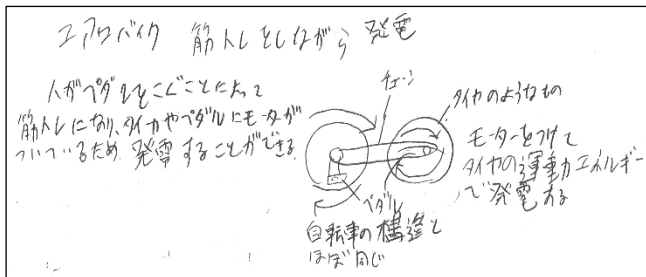 エアロバイク 筋トレをしながら 発電
人がペダルをこぐことによって
筋トレになり、タイヤやペダルにモーターが
ついているため 発電することができる
チェーン
タイヤのようなもの
モーターをつけて
タイヤの運動エネルギー
で発電する
ペダル
自転車の構造と
ほぼ同じ